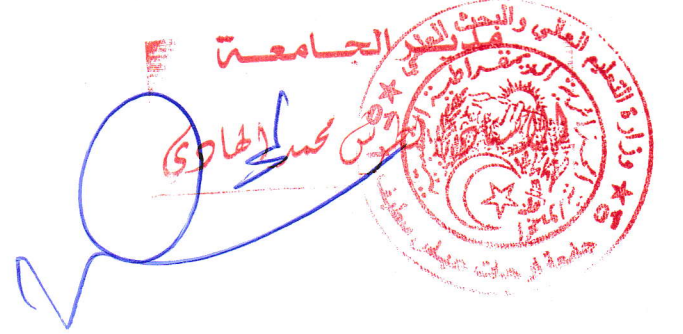 مديـر الجـامعـة
لطرش محمد الهادي
وزارة التعليم العالي والبحث العلمي
الجمهورية الجزائرية الديمقراطية الشعبية
جامعة فرحات عباس سطيف